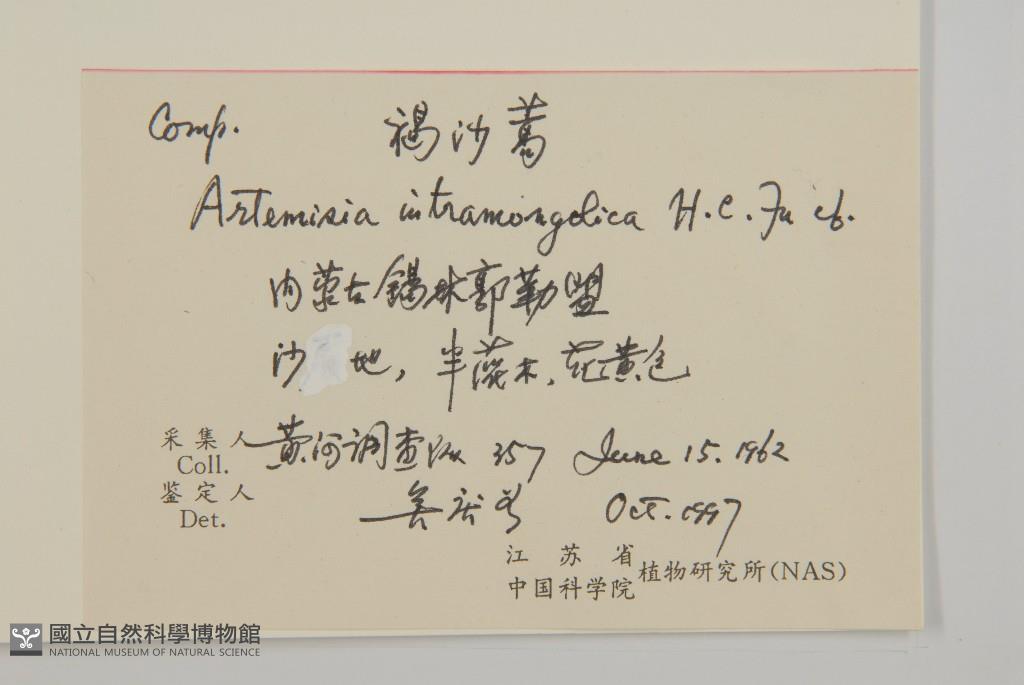 Comp. 褐沙蒿
Artemisia intramongolica H.C.Fu cf.
内蒙古锡林郭勒盟
沙 地，半灌木，花黄色
采集人 Coll. 黄河调查队 357 June 15. 1962
鉴定人 Det. Oct. 1997
江苏省
中国科学院 植物研究所(NAS)
國立自然科學博物館
NATIONAL MUSEUM OF NATURAL SCIENCE